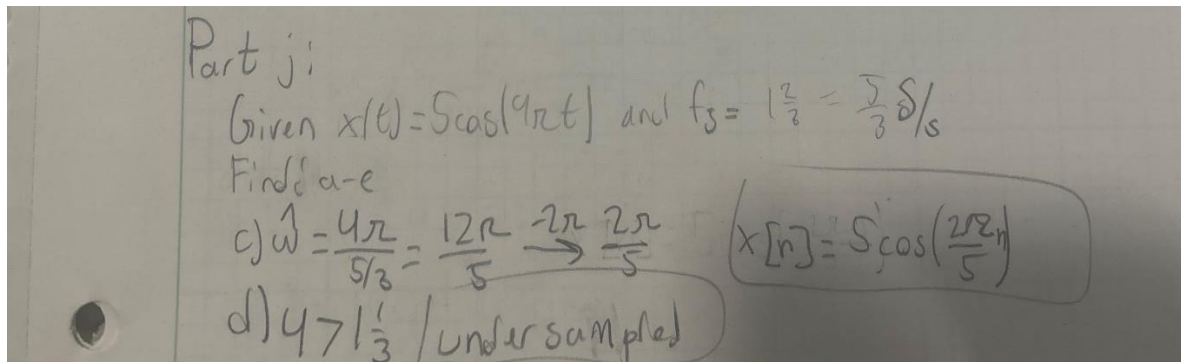 Part j:
Given x(t)=5cos(4πt) and fs = 1 2/3 = 5/3 S/s
Find: a-e
c) ω̂ = 4π/(5/3) = 12π/5 -2π→ 2π/5 x[n] = 5cos(2π/5 n)
d) 4 > 1 1/3 / undersampled